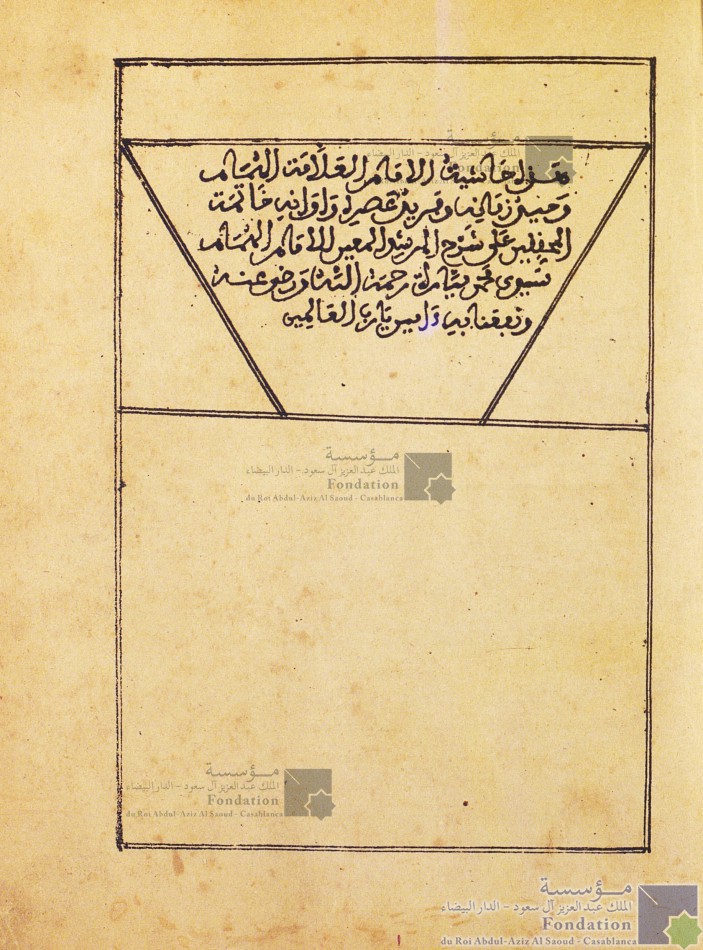 هذا حاشية الامام العلامة الهمام
وحيد زمانه وفريد عصره واوانه خاتمة
المحققين على شرح المرشد المعين للامام الهمام
سيدي محمد ميارة رحمه الله ورضي عنه
ونفعنا به ءامين يا رب العالمين
مؤسسة
الملك عبد العزيز آل سعود - الدار البيضاء
Fondation
du Roi Abdul-Aziz Al Saoud - Casablanca
مؤسسة
الملك عبد العزيز آل سعود - الدار البيضاء
Fondation
du Roi Abdul-Aziz Al Saoud - Casablanca
مؤسسة
الملك عبد العزيز آل سعود - الدار البيضاء
Fondation
du Roi Abdul-Aziz Al Saoud - Casablanca